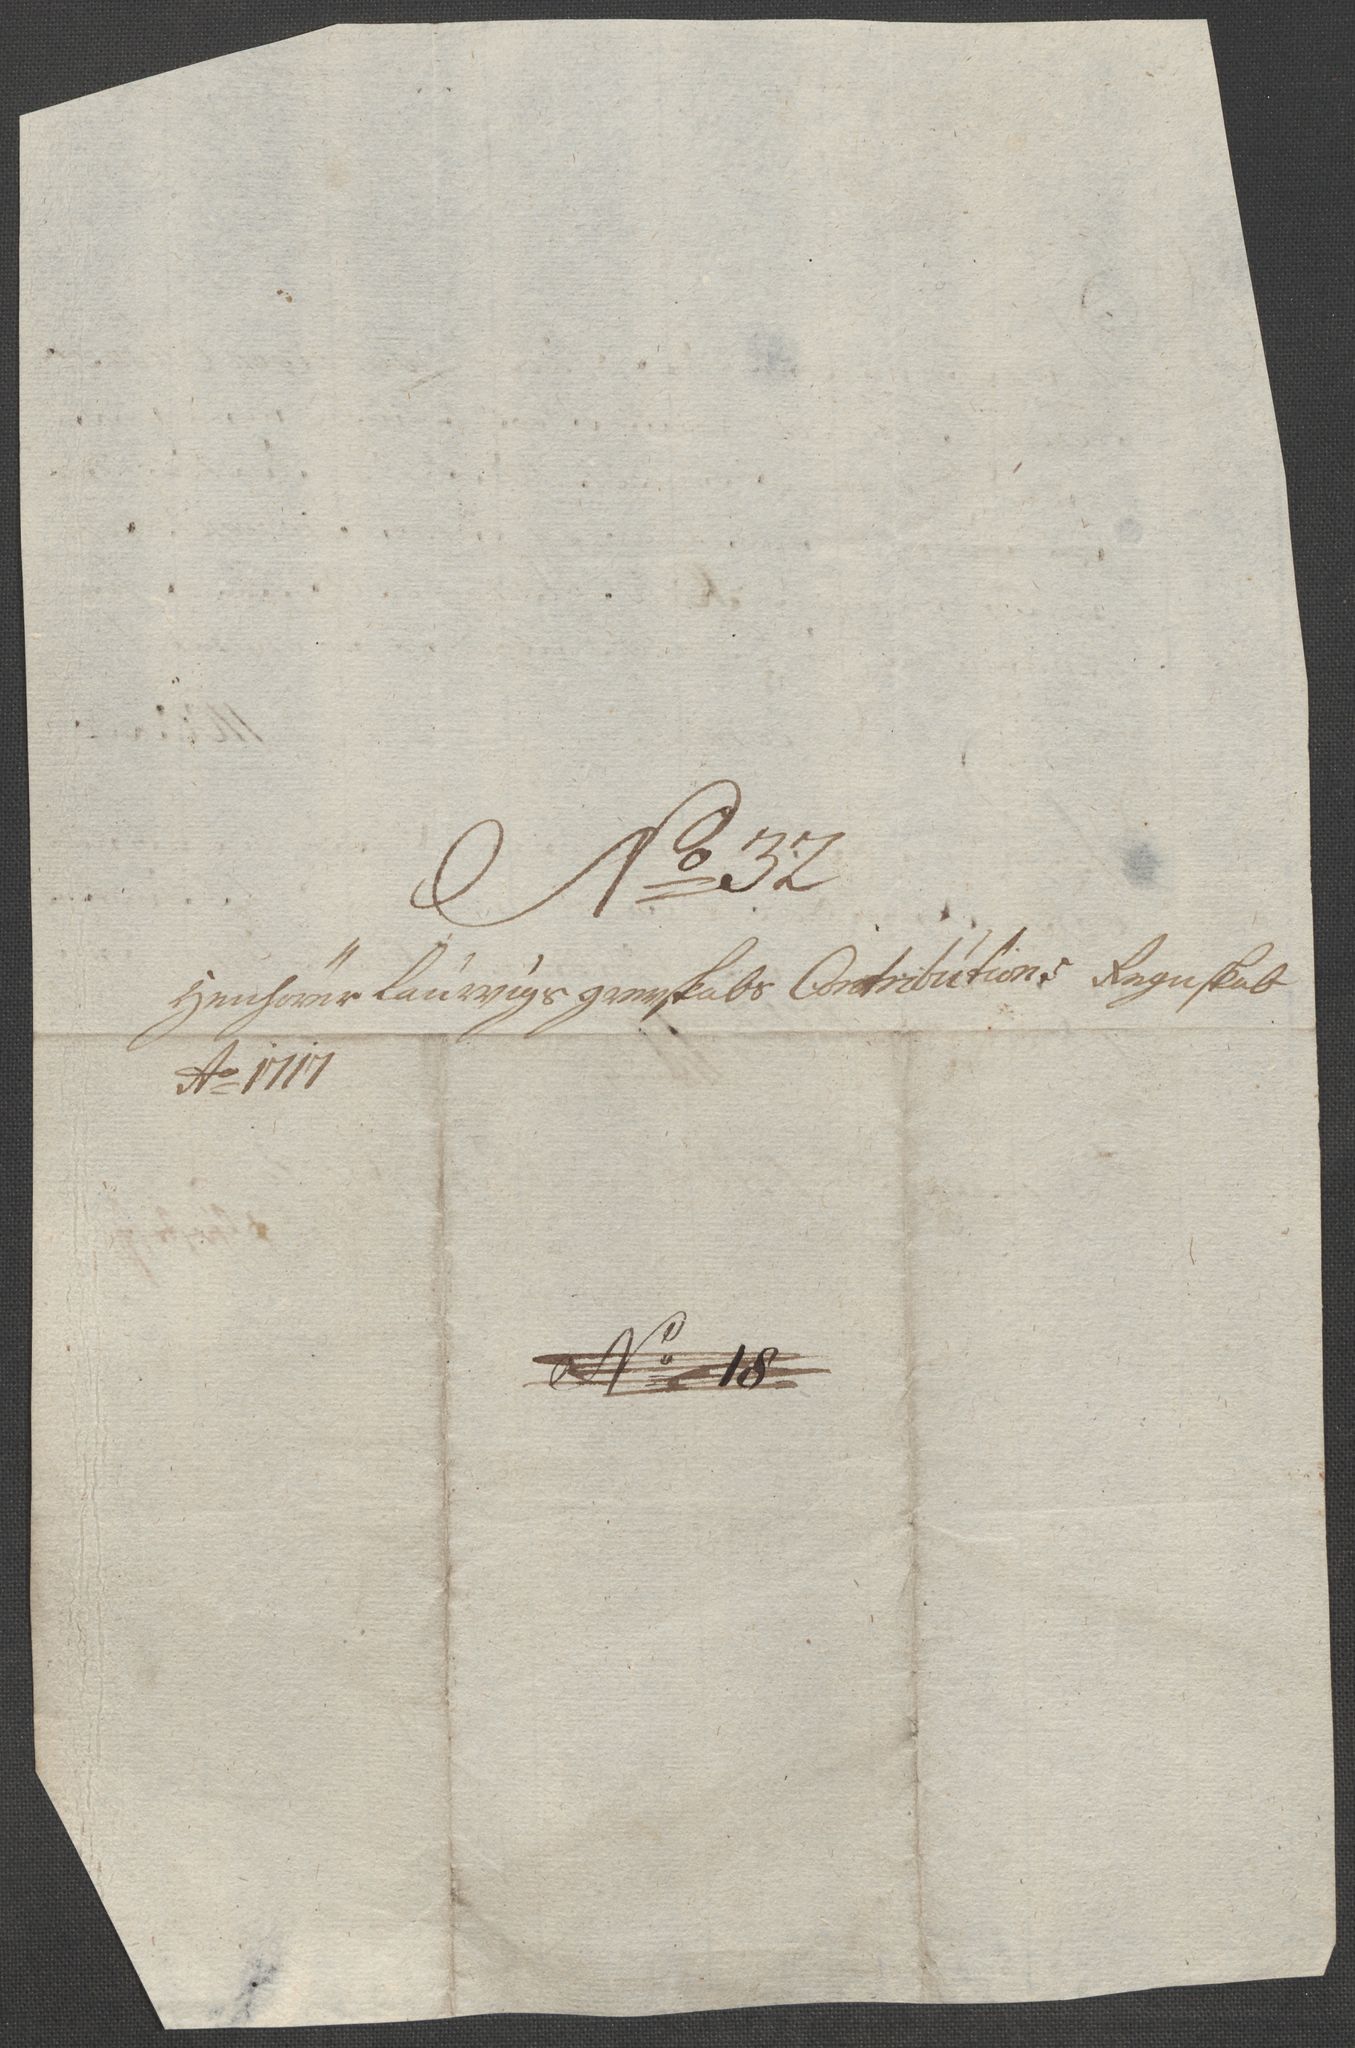 No 32
Henhörer Laúrvigs grevskabs Contribútions Regnskab
Ao 1717
No 18